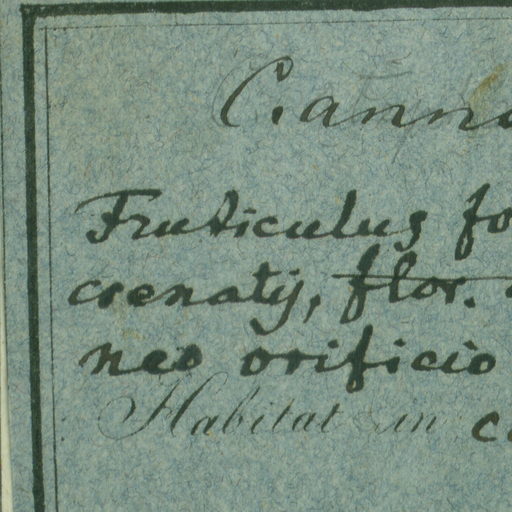 C. anna
Fruticulus fo
crenatij, flor.
neo orificio
Habitat in c